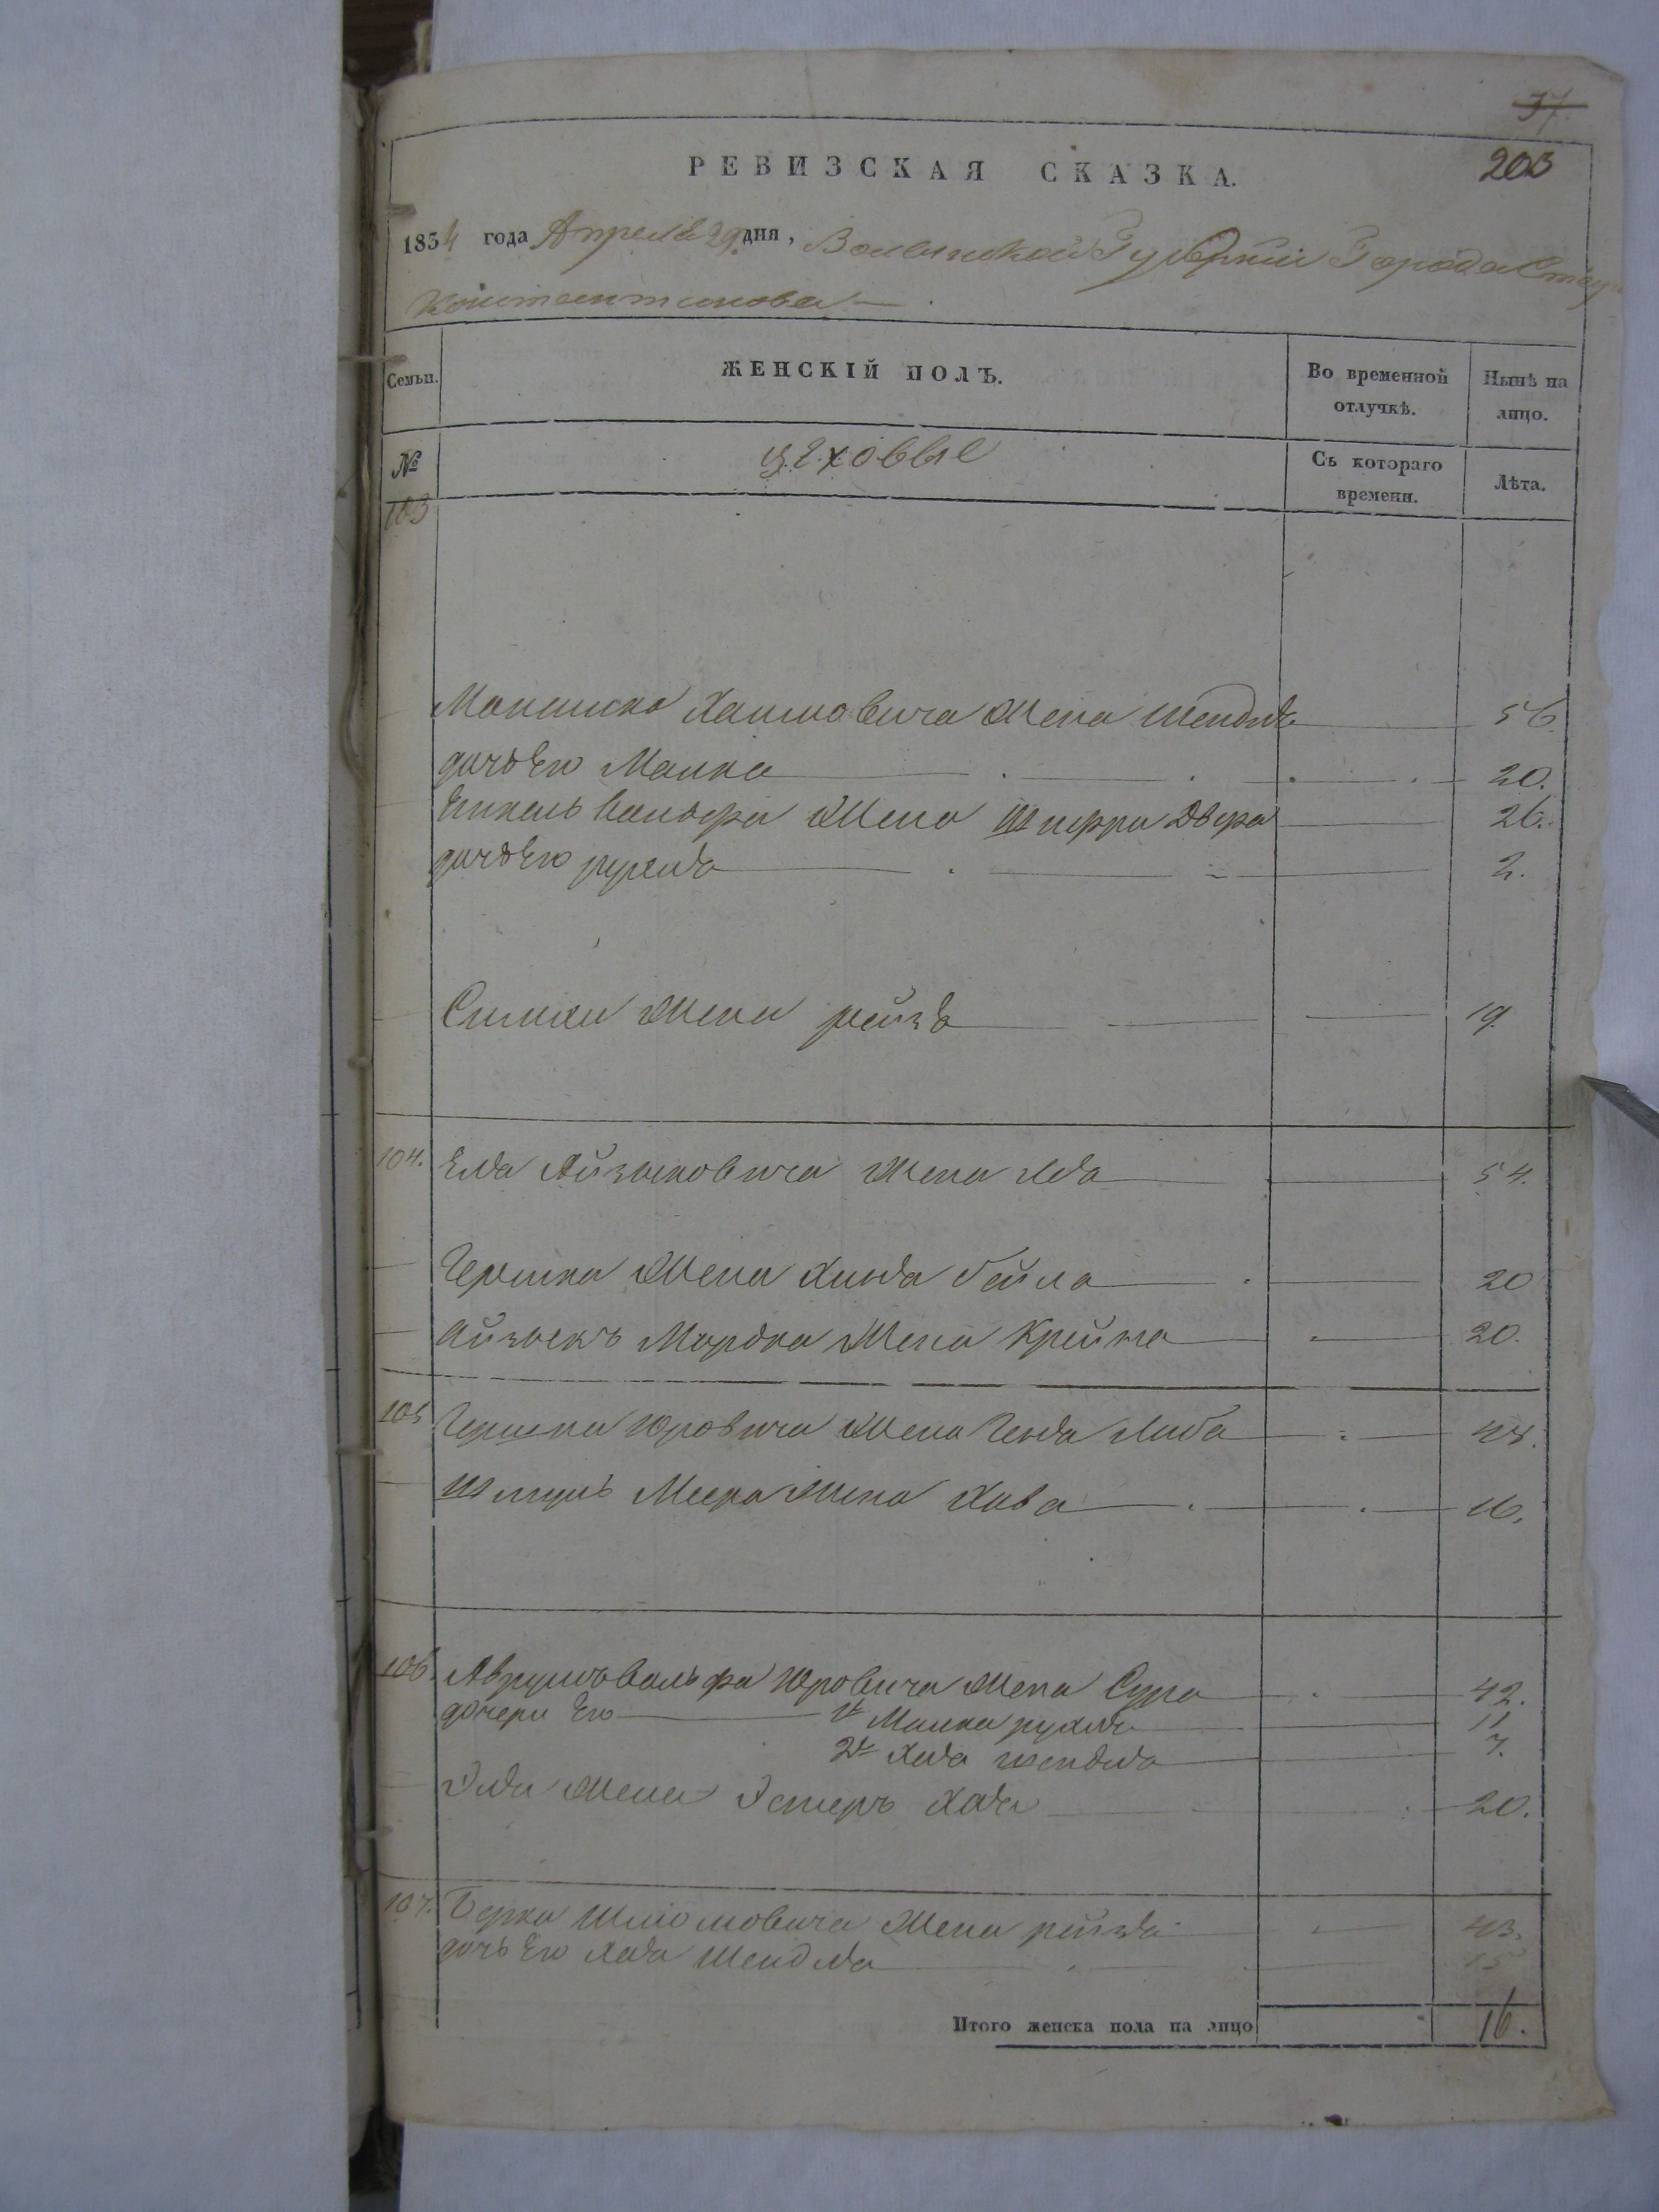 37.
203
РЕВИЗСКАЯ СКАЗКА.
1854 года Апреля 29 дня, Волынской Губерніи Города Старо
Константинова
Семьи.
ЖЕНСКІЙ ПОЛЪ.
Во временной отлучкѣ.
Нынѣ на лицо.
№
цеховые
Съ котораго времени.
Лѣта.
103
Хаимовича жена Шендля 56.
дочь Его Малка 20.
Вольфа жена Шифра Двера 26.
дочь Его рухля 2.
Симхи жена рейзя 19.
104. Еля Айзыковича жена 54.
Гершка жена Бейла 20
Айзыкъ Мордка жена Крейна 20.
105 Гершка Юровича жена Генда Либа 44.
Шмуль Меера жена Хава 16.
106. Аврумъ Вольфа Юровича жена Сура 42.
дочери Его 1я Малка рухля 11
2я Хая шендля 7.
Эля жена Эстеръ Хая 20.
107. Берка Шліомовича жена рейзя 43.
дочь Его Хая Шендля 15
Итого женска пола на лицо 16.